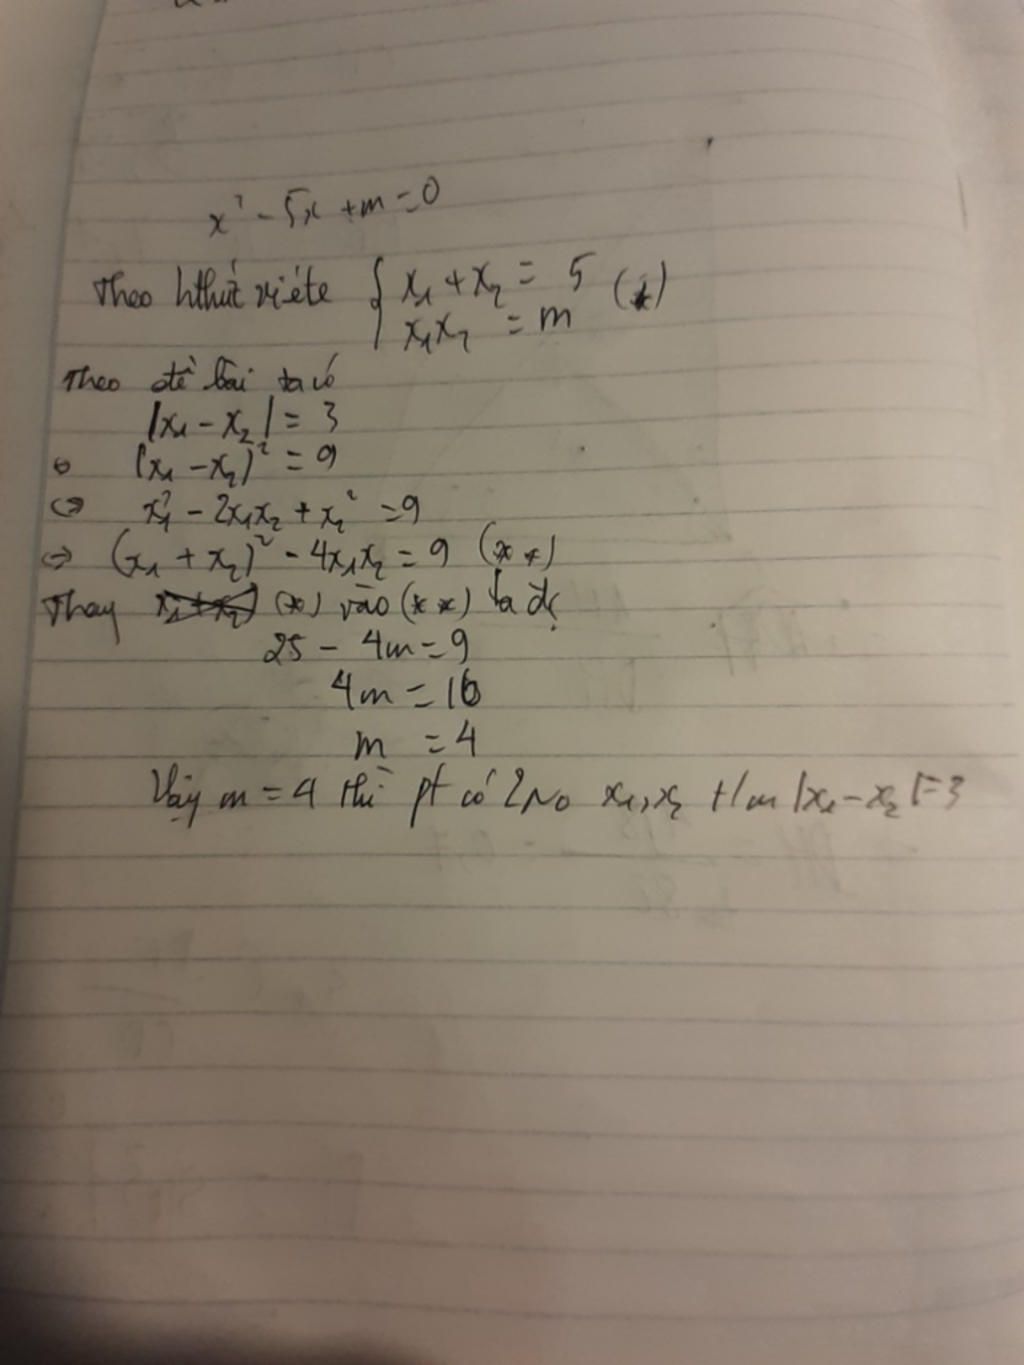 x² - 5x + m = 0
Theo hthức viéte { x₁ + x₂ = 5 (*)
x₁x₂ = m
Theo đề bài ta có
|x₁ - x₂| = 3
(x₁ - x₂)² = 9
⇔ x₁² - 2x₁x₂ + x₂² = 9
⇔ (x₁ + x₂)² - 4x₁x₂ = 9 (**)
Thay (*) vào (**) ta đc
25 - 4m = 9
4m = 16
m = 4
Vậy m = 4 thì pt có 2 No x₁, x₂ t/m |x₁ - x₂| = 3